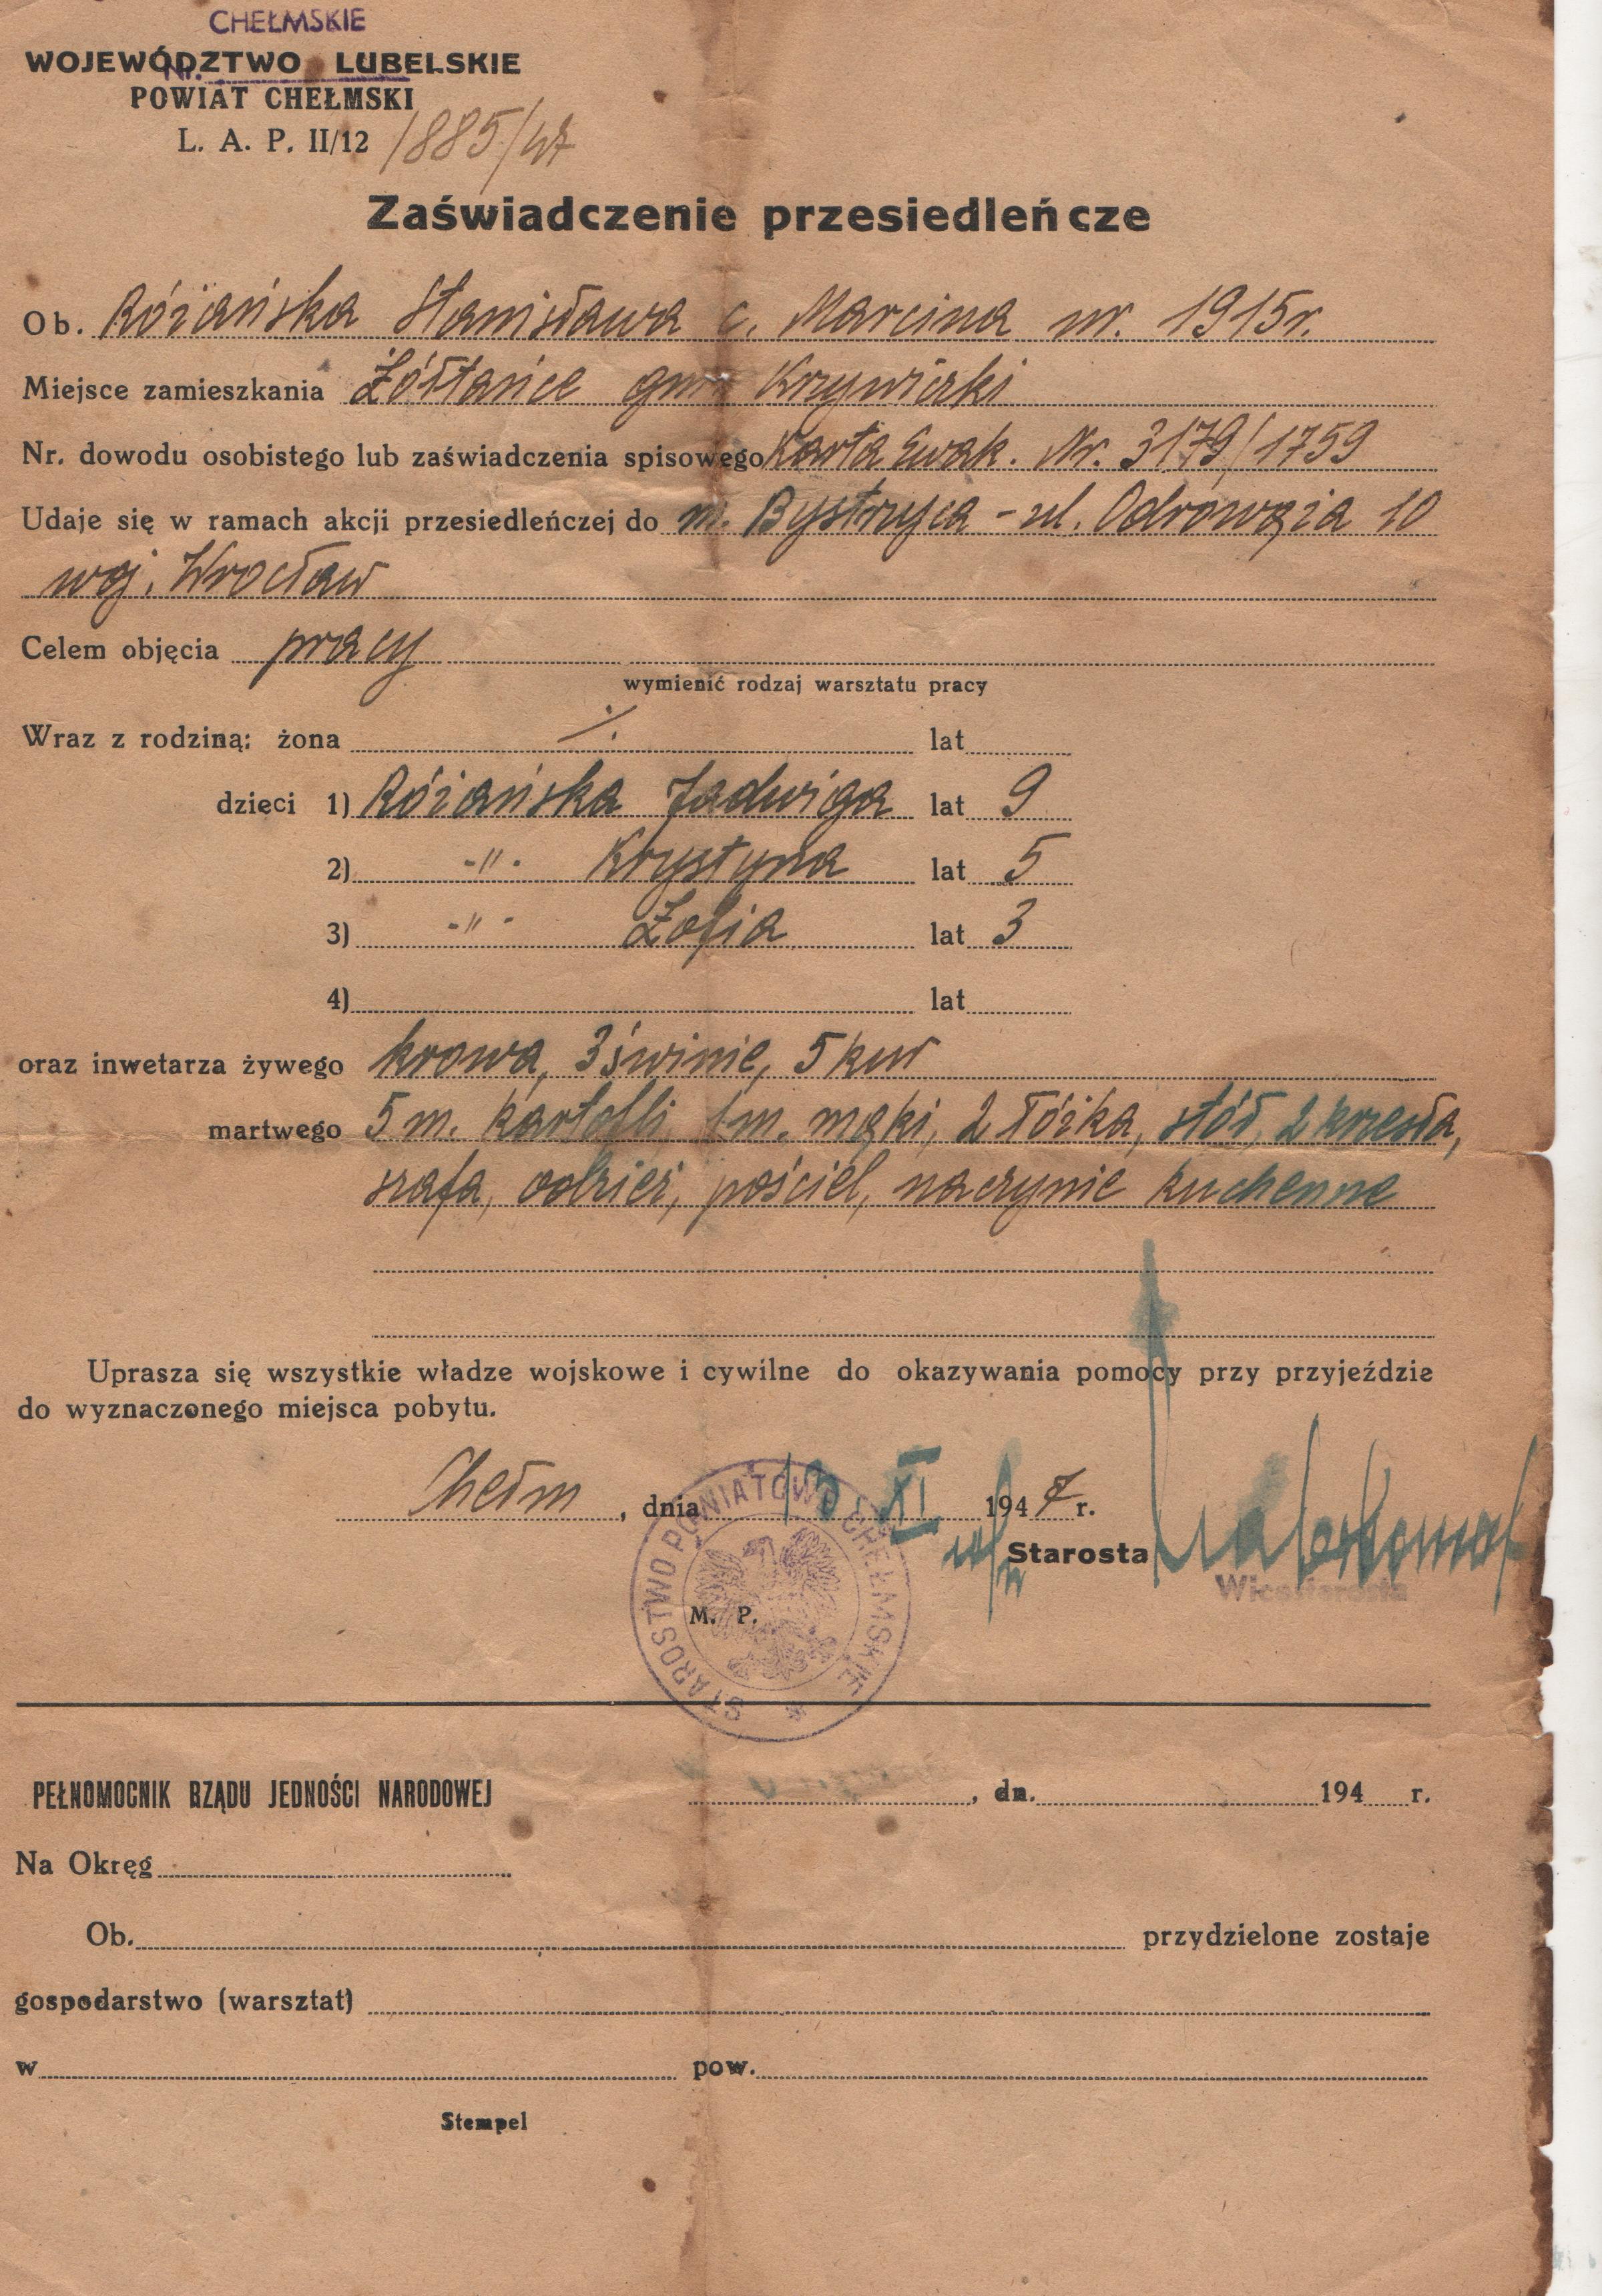 CHEŁMSKIE
WOJEWÓDZTWO LUBELSKIE
Nr.
POWIAT CHEŁMSKI
L. A. P. II/12 /1885/47
Zaświadczenie przesiedleńcze
Ob. Różańska Stanisława c. Marcina ur. 1915r.
Miejsce zamieszkania Żółtańce gm. Krzywiczki
Nr. dowodu osobistego lub zaświadczenia spisowego Karta Ewak. Nr. 3179/1759
Udaje się w ramach akcji przesiedleńczej do m. Bystrzyca - ul. Odrowąża 10
woj. Wrocław
Celem objęcia pracy
wymienić rodzaj warsztatu pracy
Wraz z rodziną: żona ./. lat
dzięci 1) Różańska Jadwiga lat 9
2) -"- Krystyna lat 5
3) -"- Zofia lat 3
4) lat
oraz inwetarza żywego krowa, 3 świnie, 5 kur
martwego 5 m. kartofli, 1 m. mąki, 2 łóżka, stół, 2 krzesła,
szafa, odzież, pościel, naczynie kuchenne
Uprasza się wszystkie władze wojskowe i cywilne do okazywania pomocy przy przyjeździe
do wyznaczonego miejsca pobytu.
Chełm, dnia 13 XI 1947 r.
Starosta
Wicestarosta
M. P.
STAROSTWO POWIATOWE CHEŁMSKIE
PEŁNOMOCNIK RZĄDU JEDNOŚCI NARODOWEJ , dn. 194 r.
Na Okręg
Ob. przydzielone zostaje
gospodarstwo (warsztat)
w pow.
Stempel